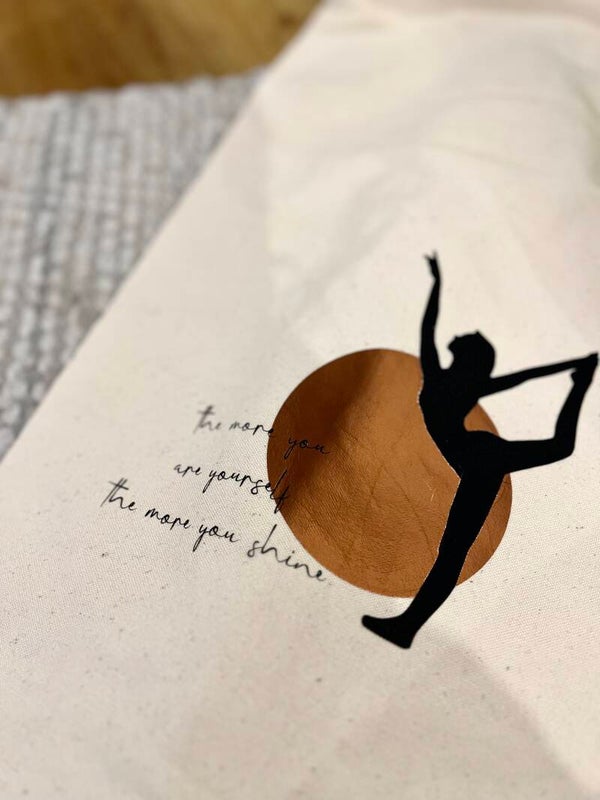 the more you
are yourself
the more you shine